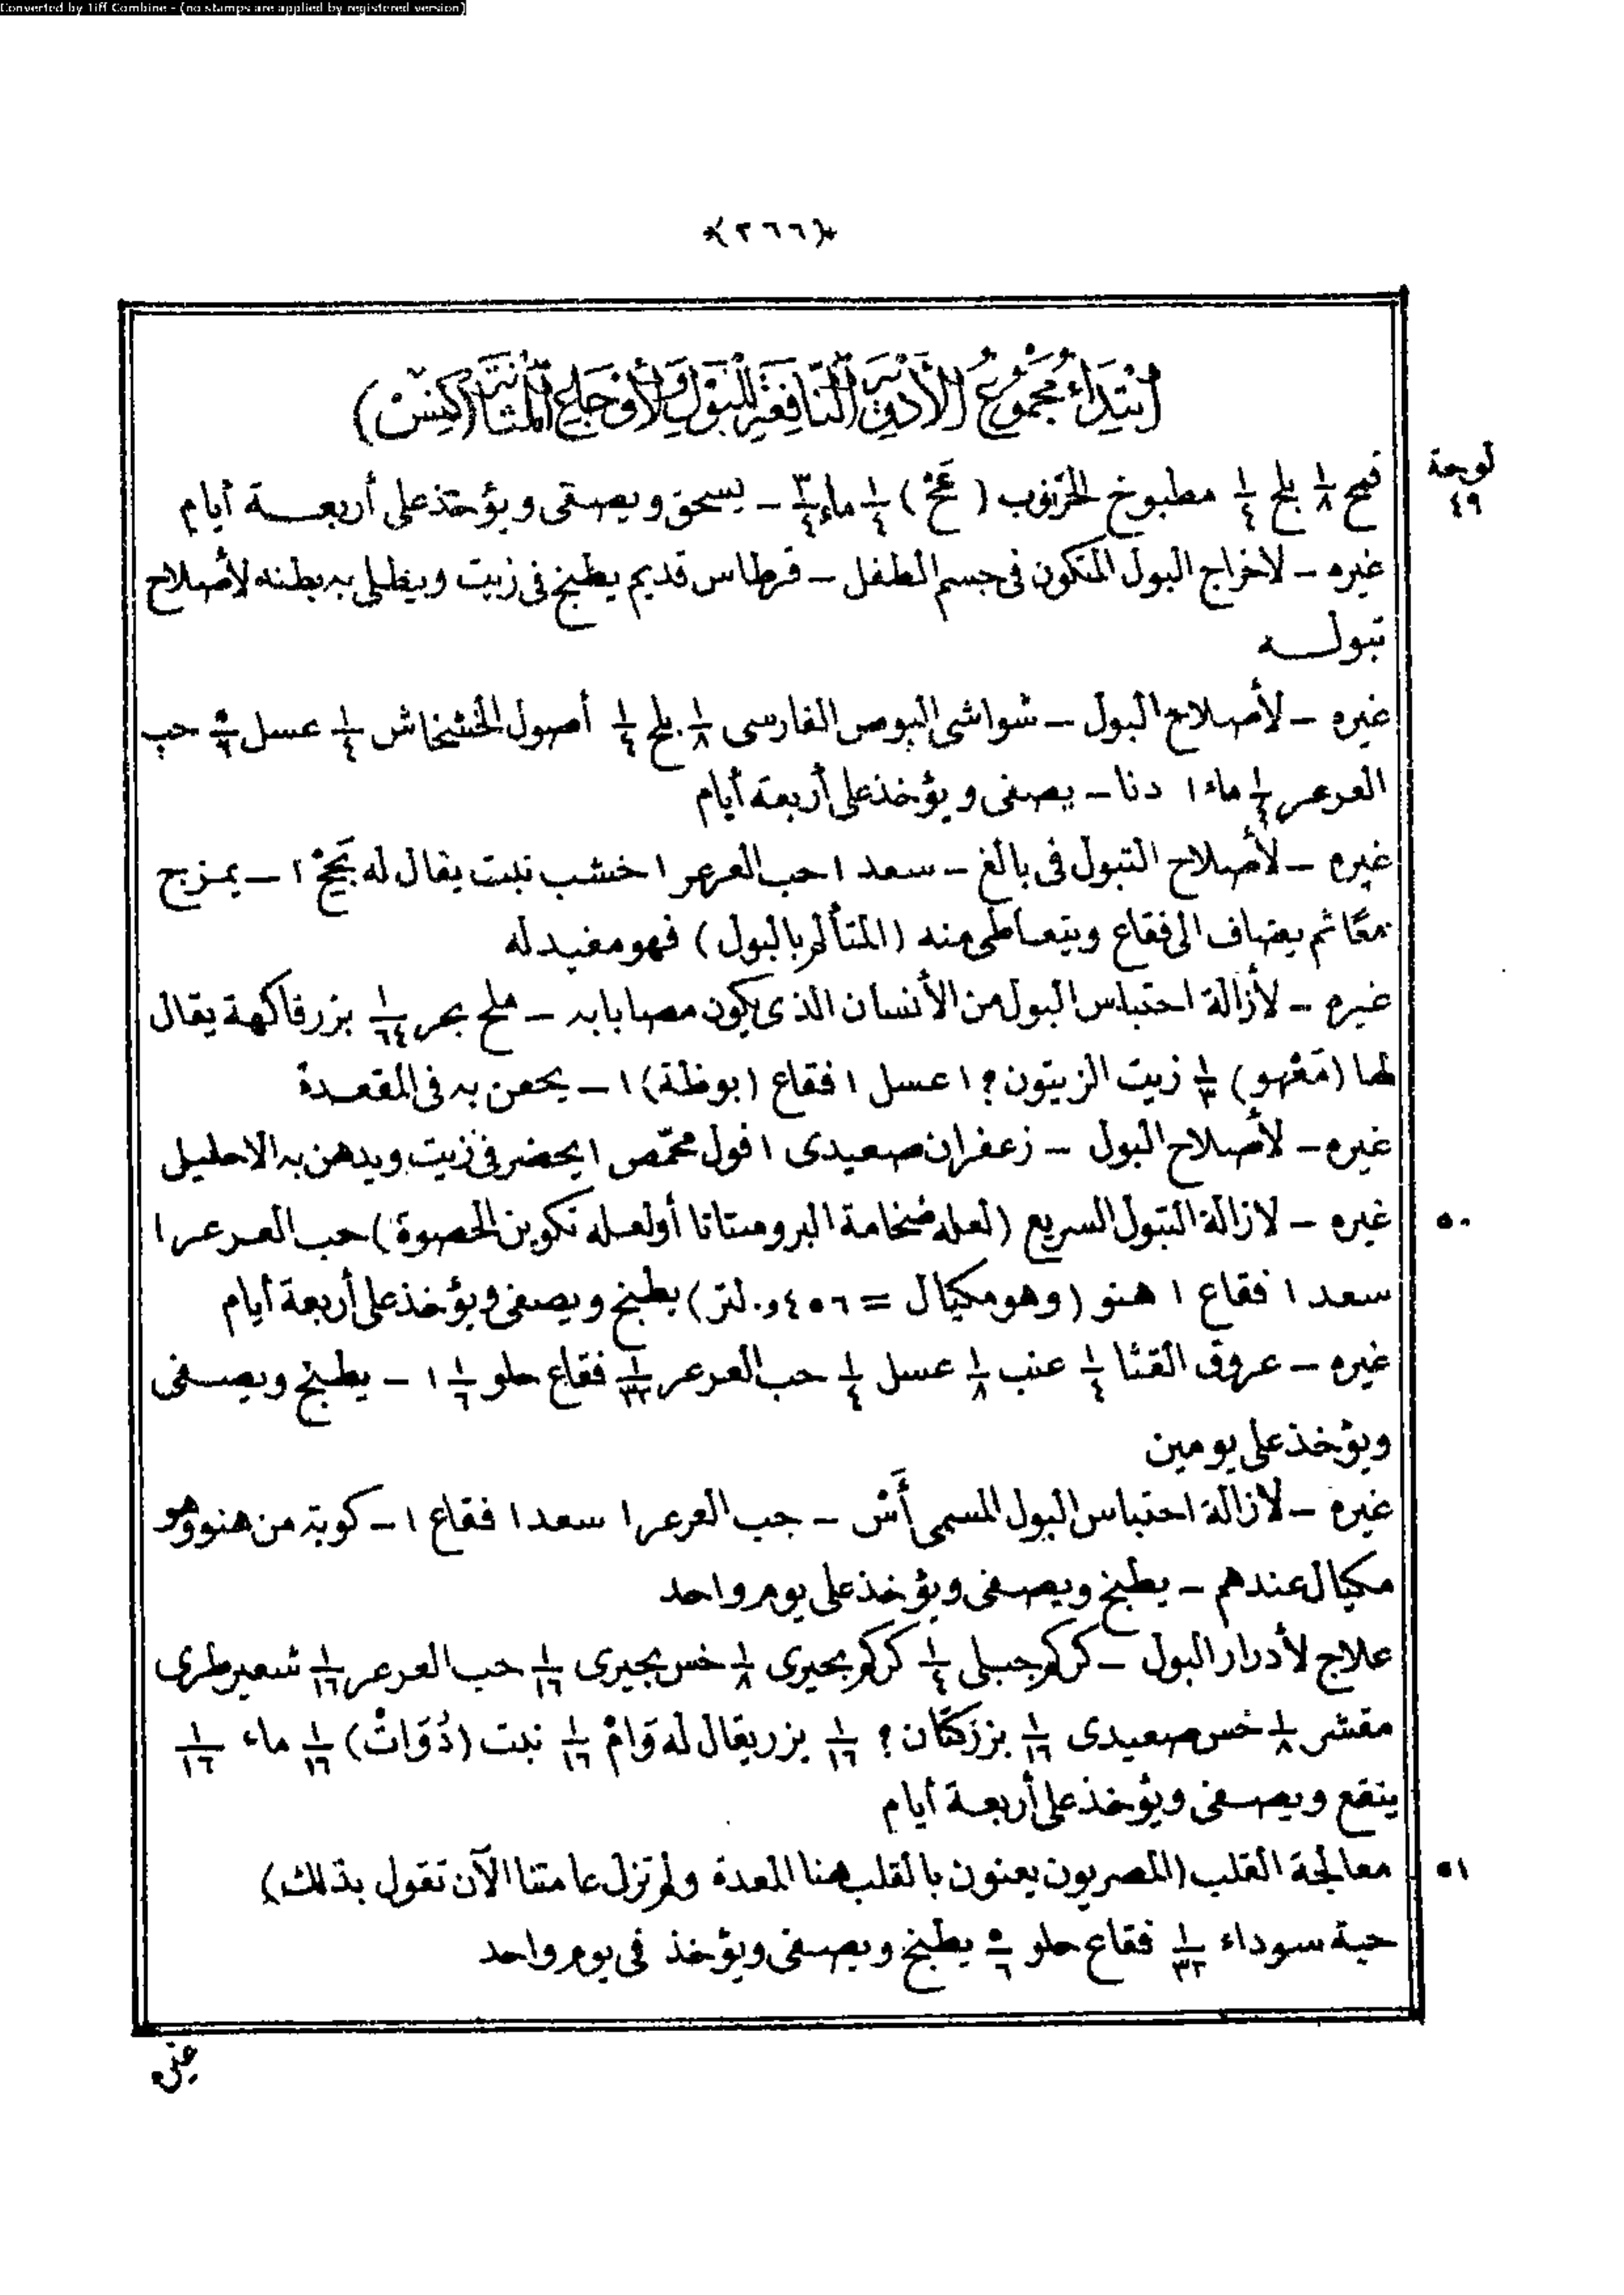 Converted by Tiff Combine - (no stamps are applied by registered version)
﴿٢٦٦﴾
ابْتِدَاءُ مَجْمُوْعِ الْأَدْوِيَةِ النَّافِعَةِ لِلْبَوْلِ وَلِأَوْجَاعِ الْمَثَانَةِ (كِنِسْ)
لوحة ٤٩
قمح ١/٨ بلح ١/٤ مطبوخ الخرنوب ( ) ١/٤ ماء ٣/٤ – يسحق ويصفى ويؤخذ على أربعـــة أيام
غيره – لاخراج البول المتكون فى جسم الطفل – قرطاس قديم يطبخ فى زيت ويطلى به بطنه لأصلاح
تبولـــه
غيره – لأصلاح البول – شواشى البوص الفارسى ١/٨ بلح ١/٤ أصول الخشخاش ١/٤ عسل ٥/٦ حب
العرعر ١/٤ ماء ١ دنا – يصفى ويؤخذ على أربعة أيام
غيره – لأصلاح التبول فى بالغ – سعد ١ حب العرعر ١ خشب نبت يقال له ١ – يمزج
معًا ثم يضاف الى فقاع ويتعاطى منه (المتألم بالبول) فهو مفيد له
غيره – لأزالة احتباس البول من الأنسان الذى يكون مصابا به – ملح بحر ١/٦٤ بزر فاكهة يقال
لها (مَعْهو) ١/٣ زيت الزيتون ؟ ١ عسل ١ فقاع (بوظة) ١ – يحقن به فى المقعدة
غيره – لأصلاح البول – زعفران صعيدى ١ فول محمّص ١ يحضر فى زيت ويدهن به الاحليل
٥٠
غيره – لازالة التبول السريع (لعله ضخامة البروستاتا أولعله تكوين الحصوة) حب العرعر ١
سعد ١ فقاع ١ هنو (وهو مكيال = ٤٥٦و٠ لتر) يطبخ ويصفى ويؤخذ على أربعة أيام
غيره – عروق القثا ١/٤ عنب ١/٨ عسل ١/٤ حب العرعر ١/٣٢ فقاع حلو ١/٦ ١ – يطبخ ويصــفى
ويؤخذ على يومين
غيره – لازالة احتباس البول المسمى أَش – حب العرعر ١ سعد ١ فقاع ١ – كوبة من هنو وهو
مكيال عندهم – يطبخ ويصفى ويؤخذ على يوم واحد
علاج لأدرار البول – كركم جبلى ١/٤ كركم بحيرى ١/٨ خس بحيرى ١/١٦ حب العرعر ١/١٦ شعير طرى
مقشر ١/٨ خس صعيدى ١/١٦ بزر كتّان ؟ ١/١٦ بزر يقال له وَامْ ١/١٦ نبت (دُوَاتْ) ١/١٦ ماء ١/١٦
ينقع ويصــفى ويؤخذ على أربعـة أيام
٥١
معالجة القلب (المصريون يعنون بالقلب هنا المعدة ولم تزل عامتنا الآن تقول بذلك)
حبة سوداء ١/٣٢ فقاع حلو ٥/٦ يطبخ ويصفى ويؤخذ فى يوم واحد
غيره